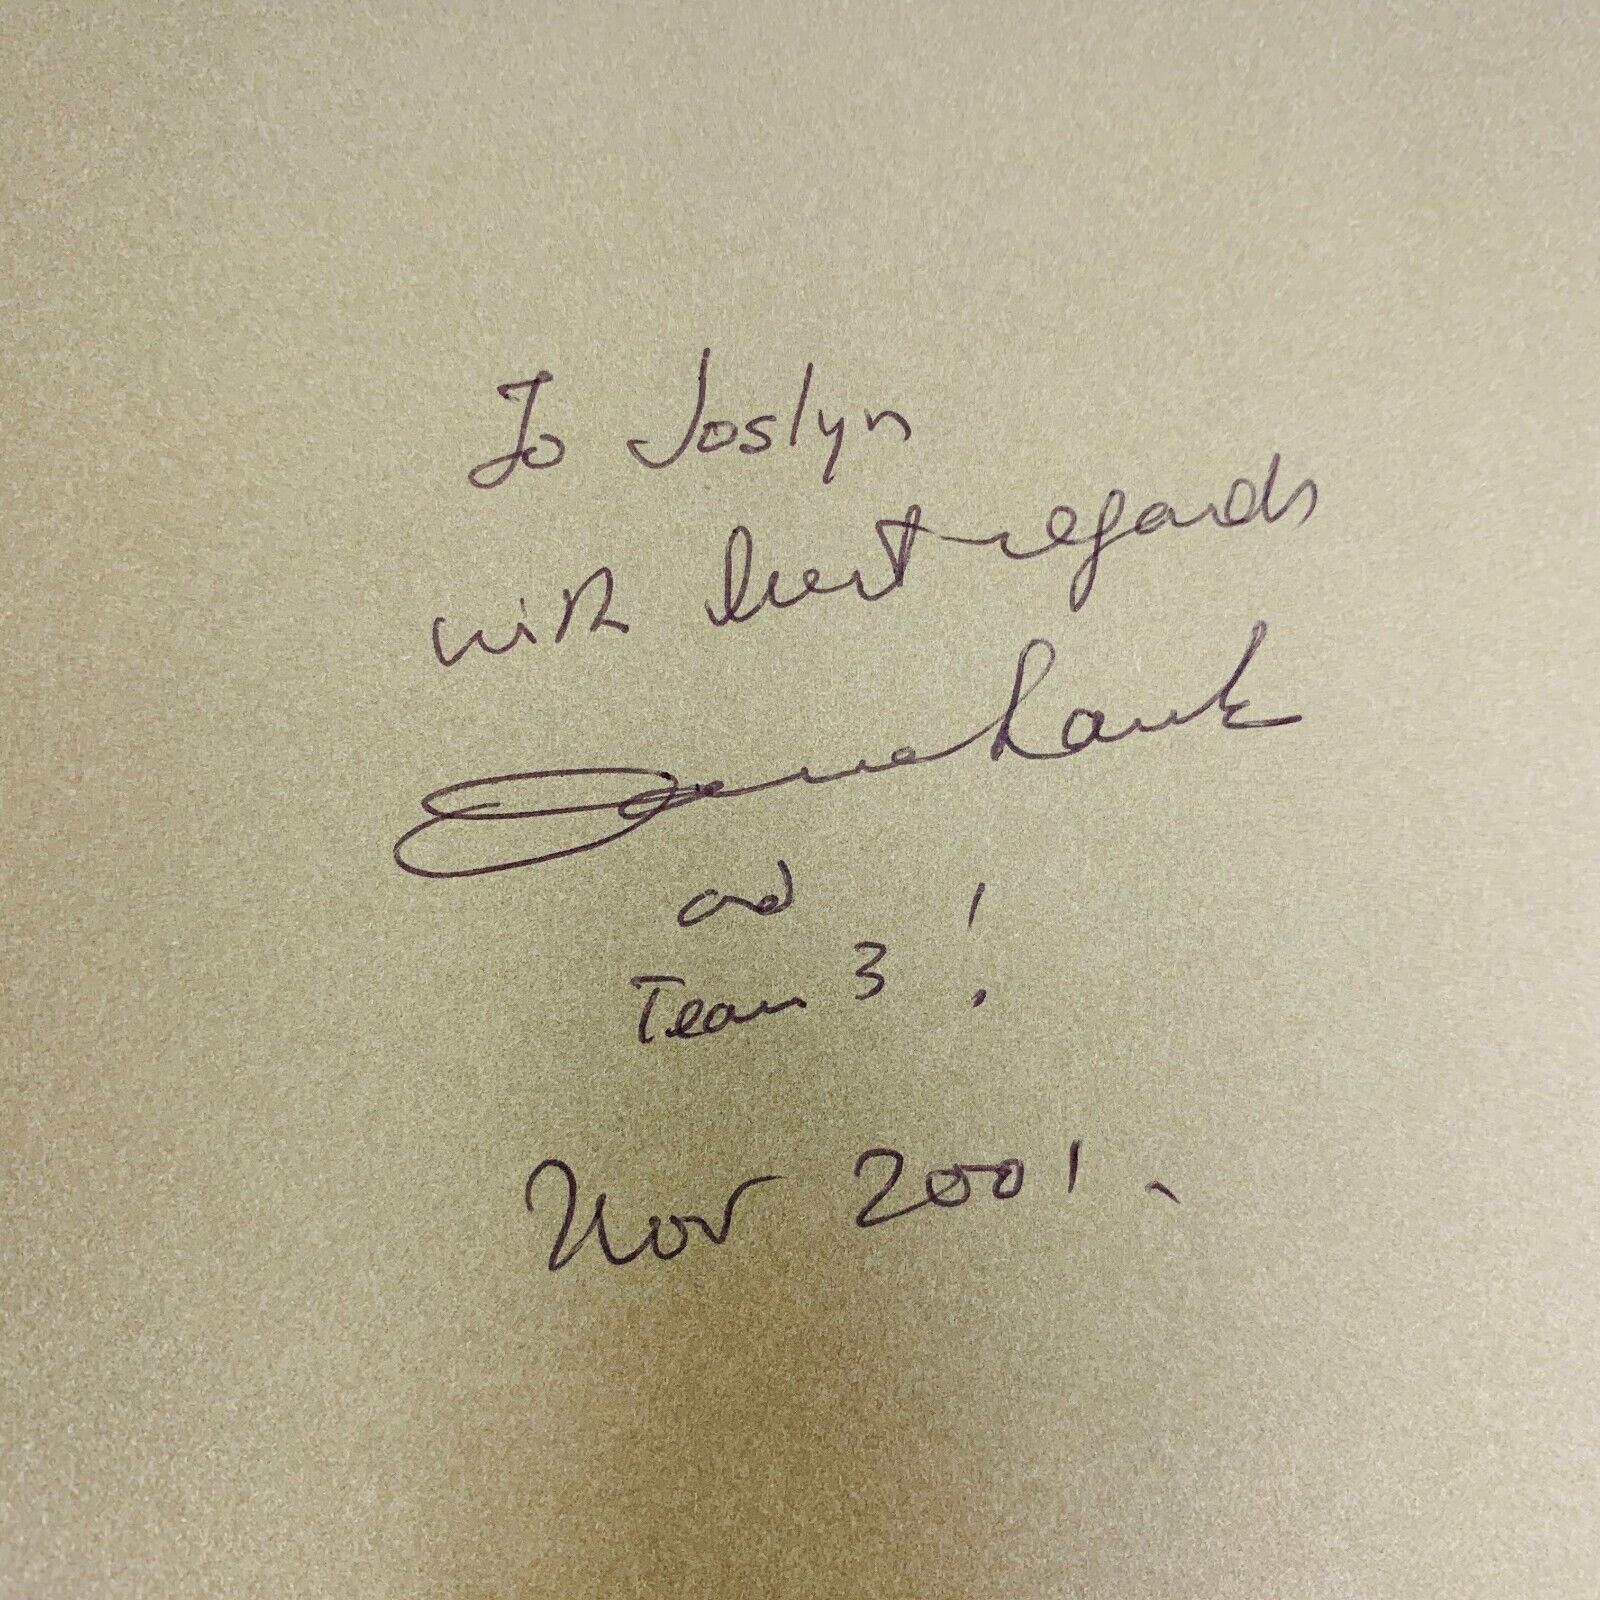 To Joslyn
with best regards
and
Team 3!
Nov 2001.